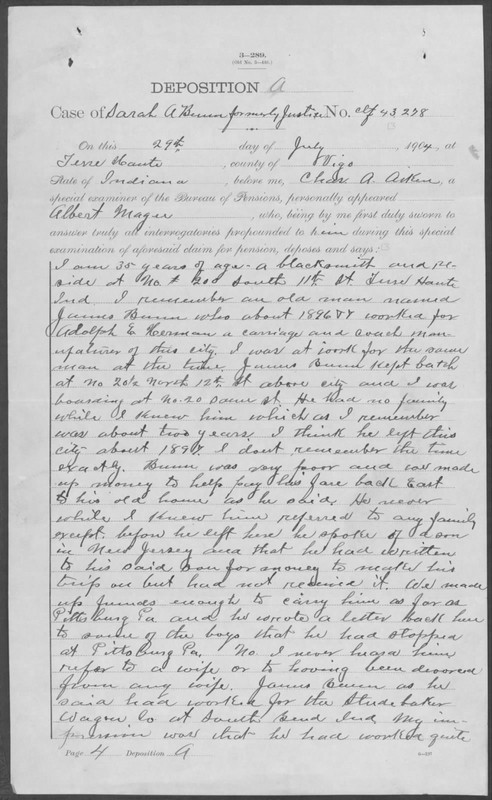 3-289.
(Old No. 3-446.)
DEPOSITION A
Case of Sarah A Bunn formerly Justice No. Ctf 43 278
On this 29th day of July, 1904, at
Terre Haute, county of Vigo
State of Indiana, before me, Chas. A. Aitkin, a
special examiner of the Bureau of Pensions, personally appeared
Albert Mager, who, being by me first duly sworn to
answer truly all interrogatories propounded to him during this special
examination of aforesaid claim for pension, deposes and says:
I am 35 years of age - a blacksmith and re-
side at No # South 11th St Terre Haute
Ind. I remember an old man named
James Bunn who about 1896 worked for
Adolph E Herman a carriage and coach man-
ufaturer of this city. I was at work for the same
man at the time. James Bunn kept batch
at No. North 12th St above city and I was
boarding at No. 20 same st. He had no family
while I knew him which as I remember
was about two years. I think he left this
city about 1897. I dont remember the time
exactly. Bunn was very poor and we made
up money to help pay his fare back East
to his old home as he said. He never
while I knew him referred to any family
except before he left here he spoke of a son
in New Jersey and that he had written
to his said son for money to make his
trip on but had not received it. We made
up funds enough to carry him as far as
Pittsburg Pa and he wrote a letter back here
to some of the boys that he had stopped
at Pittsburg Pa. No. I never heard him
refer to a wife or to having been divorced
from any wife. James Bunn as he
said had worked for the Studebaker
Wagon Co at South Bend Ind. My im-
pression was that he had worked quite
Page 4 Deposition A